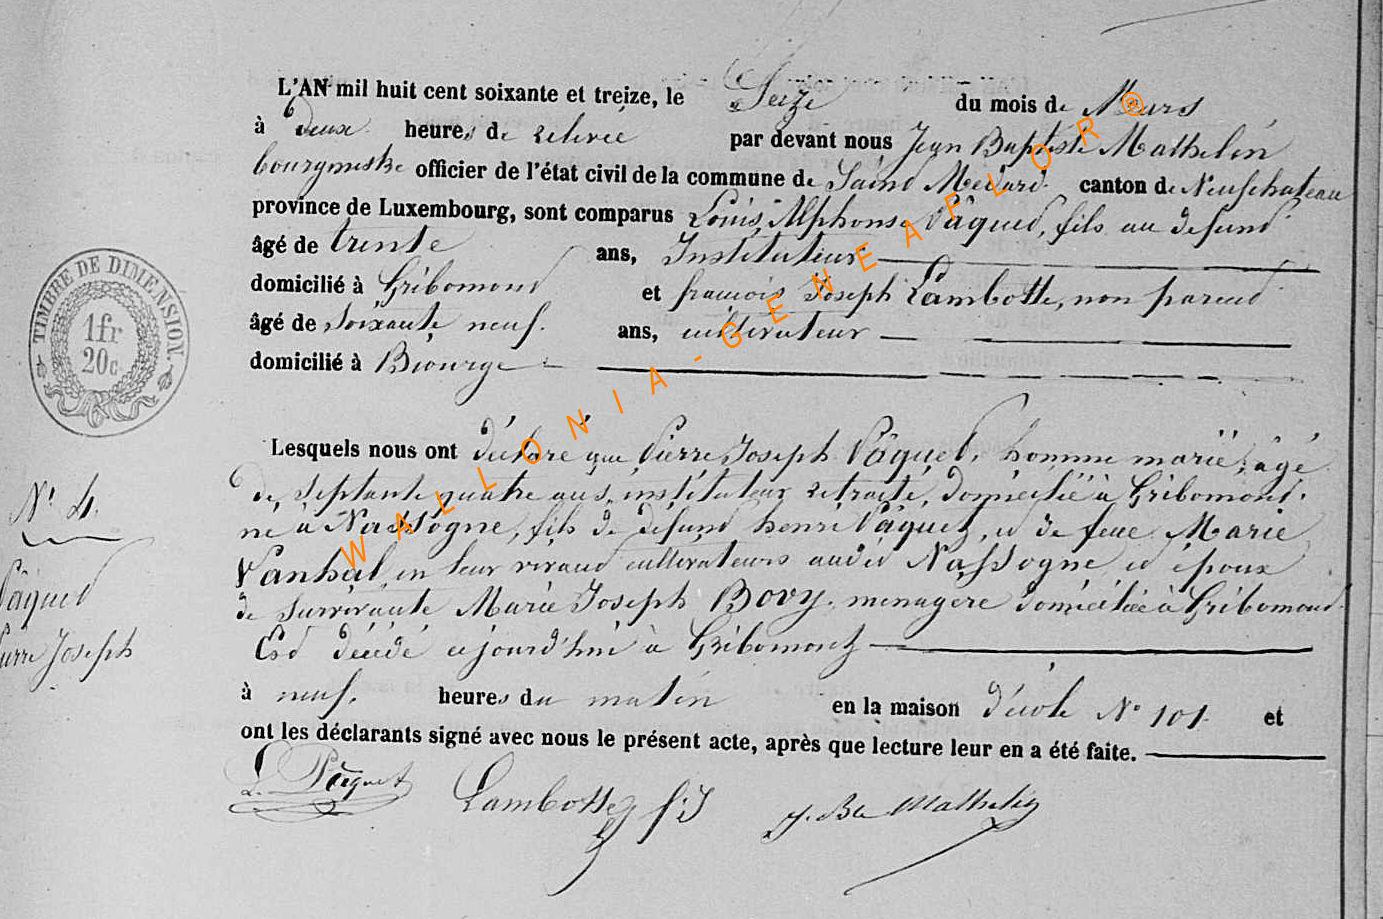 L'AN mil huit cent soixante et treize, le Seize du mois de Mars
à Deux heures de relevée par devant nous Jean Baptiste Mathelin
bourgmestre officier de l'état civil de la commune de Saint Médard canton de Neufchateau
province de Luxembourg, sont comparus Louis Alphonse Pâquet, fils au defunt
âgé de trente ans, Instituteur
domicilié à Gribomont et françois Joseph Lambotte, non parent
âgé de soixante neuf ans, cultivateur
domicilié à Biourge
TIMBRE DE DIMENSION.
1fr
20c.
Lesquels nous ont déclaré que Pierre Joseph Pâquet, homme marié, âgé
de septante quatre ans, instituteur retraité, domicilié à Gribomont,
né à Nassogne, fils de défunt henri Pâquet, et de feue Marie
Vanhal, en leur vivant cultivateurs audit Nassogne et époux
de survivante Marie Joseph Bovy, menagère domiciliée à Gribomont
Est décédé cejourd'hui à Gribomont
N° 4.
Pâquet
Pierre Joseph
à neuf heures du matin en la maison d'école N° 101 et
ont les déclarants signé avec nous le présent acte, après que lecture leur en a été faite.
L. Pâquet Lambotte f: J J. Bte Mathelin
WALLONIA-GENEAFLOR@